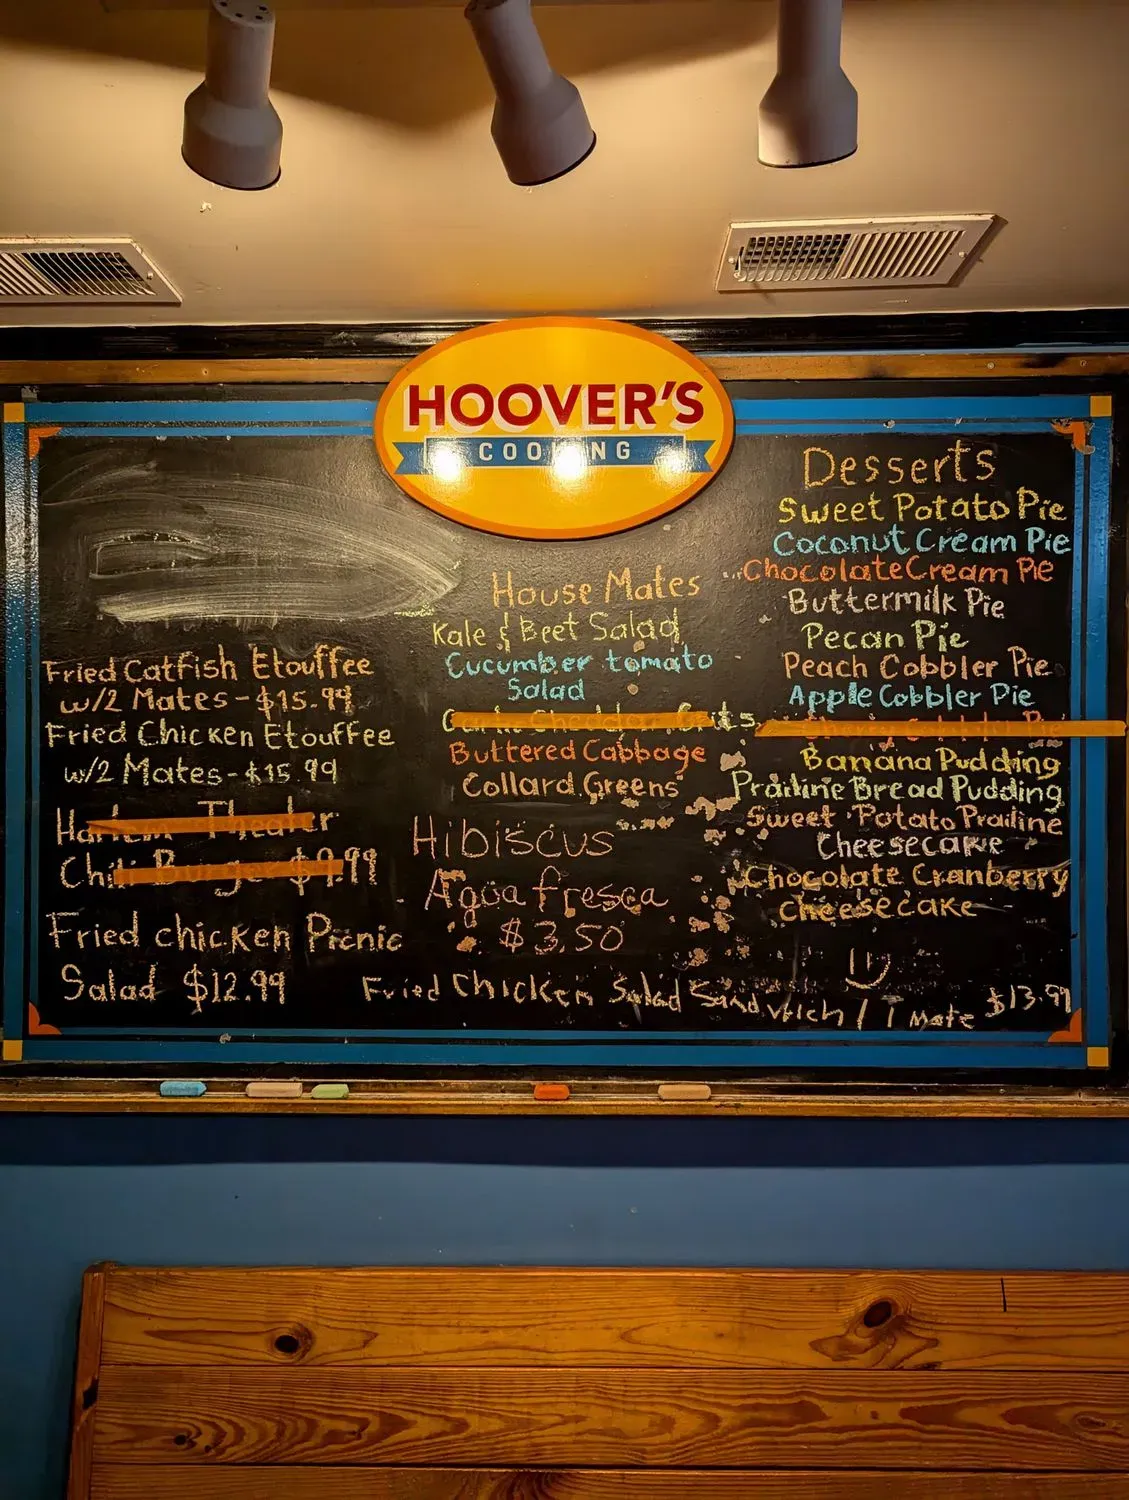 HOOVER'S
COOKING
Fried Catfish Etouffee
w/2 Mates - $15.99
Fried Chicken Etouffee
w/2 Mates - $15.99
Harlem Theater
Chili Burger $9.99
Fried chicken Picnic
Salad $12.99
House Mates
Kale & Beet Salad
Cucumber tomato
Salad
Garlic Cheddar Grits
Buttered Cabbage
Collard Greens
Hibiscus
Agua fresca
$3.50
Fried Chicken Salad Sandwich / 1 Mate $13.99
Desserts
Sweet Potato Pie
Coconut Cream Pie
Chocolate Cream Pie
Buttermilk Pie
Pecan Pie
Peach Cobbler Pie
Apple Cobbler Pie
Cobbler Pie
Banana Pudding
Prailine Bread Pudding
Sweet Potato Prailine
Cheesecake
Chocolate Cranberry
Cheesecake